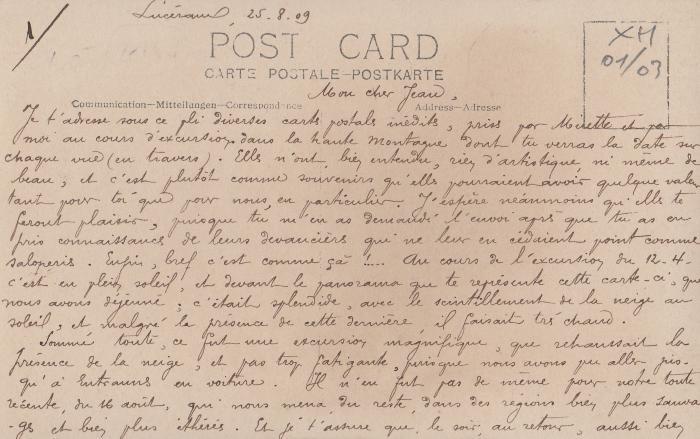 1/
Lucéram, 25.8.09
POST CARD
XH
01/03
CARTE POSTALE–POSTKARTE
Mon cher Jean,
Communication–Mitteilungen–Correspondence
Address–Adresse
Je t'adresse sous ce pli diverses carts postals inédits, priss par Minette et par
moi au cours d'excursions dans la haute montagne, dont tu verras la date sur
chaque vue (en travers). Ells n'ont, bien entendu, rien d'artistique ni même de
beau, et c'est plutôt comme souvenirs qu'ells pourraient avoir quelque valeur
tant pour toi que pour nous, en particulier. J'espère néanmoins qu'ells te
feront plaisir, puisque tu m'en as demandé l'envoi après que tu as eu
pris connaissance de leurs devancièrs qui ne leur en cédaient point comme
saloperis. Enfin, bref c'est comme çà !.... Au cours de l'excursion du 12-4-
c'est en plein soleil, et devant le panorama que te représente cette carte-ci, que
nous avons déjeuné ; c'était splendide, avec le scintillement de la neige au
soleil, et malgré la présence de cette dernière, il faisait très chaud.
Somme toute, ce fut une excursion magnifique, que rehaussait la
présence de la neige, et pas trop fatigante, puisque nous avons pu aller jus-
qu'à Entraunes en voiture. Il n'en fut pas de même pour notre toute
récente, du 16 août, qui nous mena, du reste, dans des régions bien plus sauva-
-gs et bien plus éthérés. Et je t'assure que, le soir, au retour, aussi bien